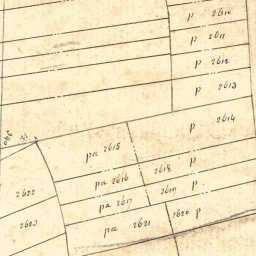 p 2610
p 2611
p 2612
p 2613
p 2614
pa 2615
p
pa 2616
2618
p
pa 2617
2619
p
2620
pa 2621
2622
2623